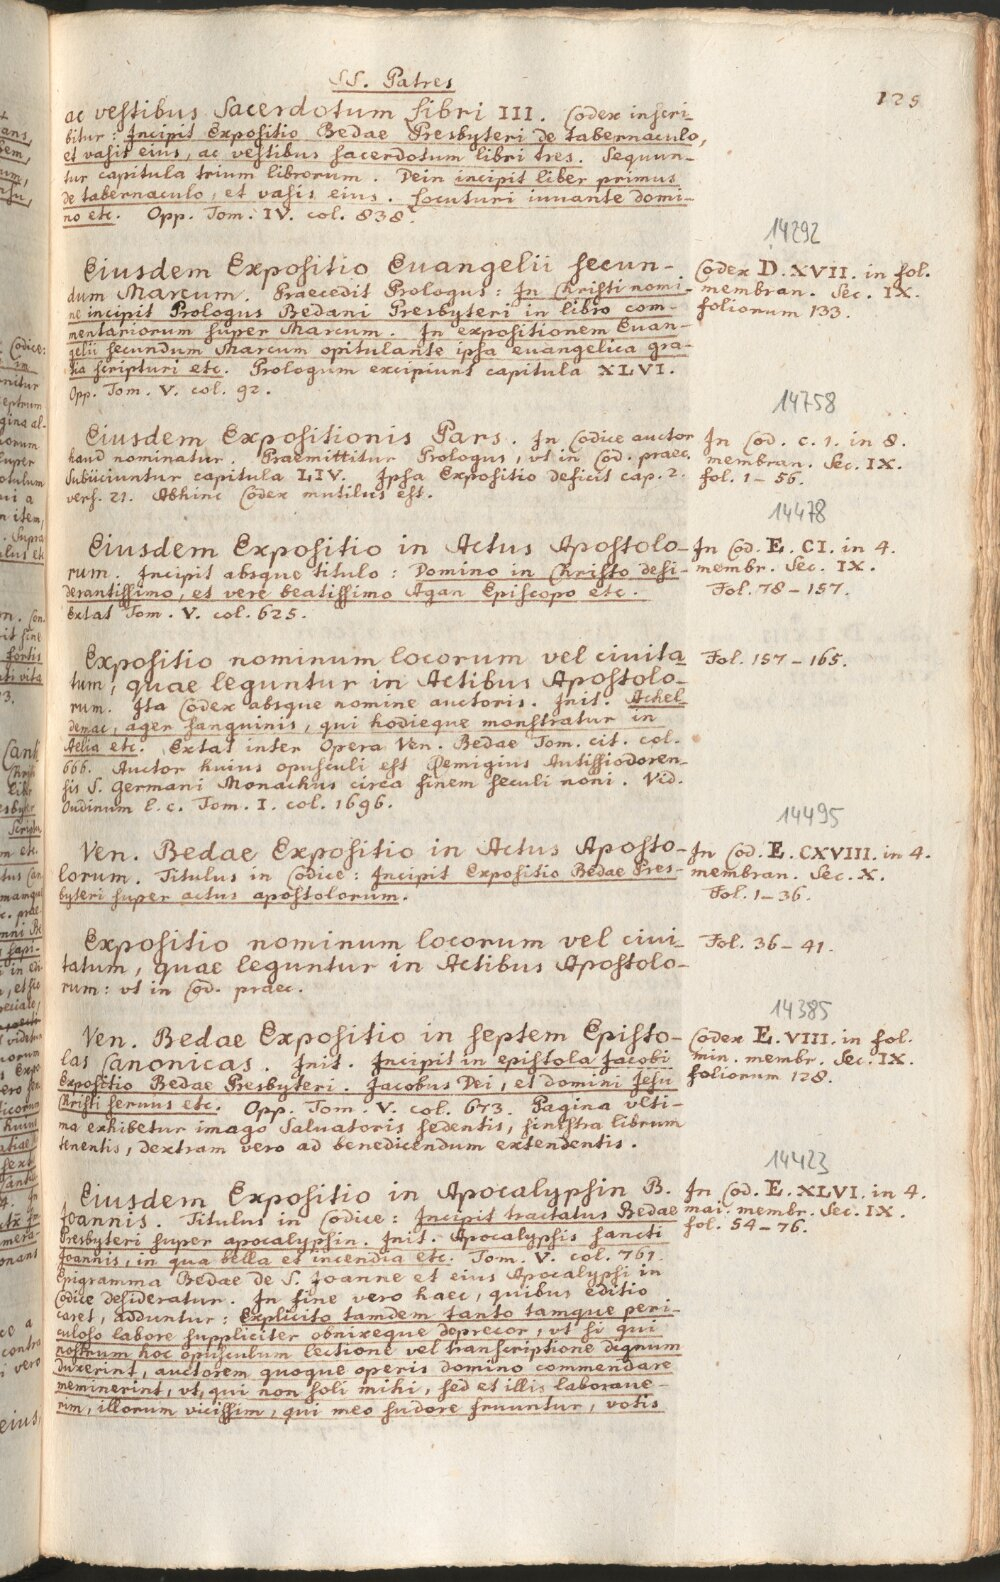 SS. Patres
125
ac vestibus Sacerdotum Libri III. Codex inscri-
bitur: Incipit Expositio Bedae Presbyteri de tabernaculo,
et vasis eius, ac vestibus sacerdotum libri tres. Sequun-
tur capitula trium librorum. Dein incipit liber primus
de tabernaculo, et vasis eius. Locuturi iuuante domi-
no etc. Opp. Tom. IV. col. 838.
14292
Eiusdem Expositio Euangelii secun-
dum Marcum. Praecedit Prologus: In Christi nomi-
ne incipit Prologus Bedani Presbyteri in libro com-
mentariorum super Marcum. In expositionem Euan-
gelii secundum Marcum opitulante ipsa euangelica gra-
tia scripturi etc. Prologum excipiunt capitula XLVI.
Opp. Tom. V. col. 92.
Codex D. XVII. in fol.
membran. Sec. IX.
foliorum 133.
14758
Eiusdem Expositionis Pars. In Codice auctor
haud nominatur. Praemittitur Prologus, vt in Cod. praec.
Subiiciuntur capitula LIV. Ipsa Expositio deficit cap. 2.
vers. 21. Abhinc Codex mutilus est.
In Cod. c. 1. in 8.
membran. Sec. IX.
fol. 1-56.
14478
Eiusdem Expositio in Actus Apostolo-
rum. Incipit absque titulo: Domino in Christo desi-
derantissimo, et vere beatissimo Agan Episcopo etc.
Extat Tom. V. col. 625.
In Cod. E. CI. in 4.
membr. Sec. IX.
Fol. 78-157.
Expositio nominum locorum vel ciuita-
tum, quae leguntur in Actibus Apostolo-
rum. Ita Codex absque nomine auctoris. Init. Achel-
demac, ager sanguinis, qui hodieque monstratur in
Aelia etc. Extat inter Opera Ven. Bedae Tom. cit. col.
666. Auctor huius opusculi est Remigius Autissiodoren-
sis S. Germani Monachus circa finem seculi noni. Vid.
Oudinum l. c. Tom. I. col. 1696.
Fol. 157-165.
14495
Ven. Bedae Expositio in Actus Aposto-
lorum. Titulus in Codice: Incipit Expositio Bedae Pres-
byteri super actus apostolorum.
In Cod. E. CXVIII. in 4.
membran. Sec. X.
Fol. 1-36.
Expositio nominum locorum vel ciui-
tatum, quae leguntur in Actibus Apostolo-
rum: vt in Cod. praec.
Fol. 36-41.
14385
Ven. Bedae Expositio in septem Episto-
las Canonicas. Init. Incipit in epistola Jacobi
Expositio Bedae Presbyteri. Jacobus Dei, et domini Jesu
Christi seruus etc. Opp. Tom. V. col. 673. Pagina vlti-
ma exhibetur imago Saluatoris sedentis, sinistra librum
tenentis, dextram vero ad benedicendum extendentis.
Codex E. VIII. in fol.
min. membr. Sec. IX.
foliorum 128.
14423
Eiusdem Expositio in Apocalypsin B.
Joannis. Titulus in Codice: Incipit tractatus Bedae
Presbyteri super apocalypsin. Init. Apocalypsis sancti
Joannis, in qua bella et incendia etc. Tom. V. col. 761.
Epigramma Bedae de S. Joanne et eius Apocalypsi in
Codice desideratur. In fine vero haec, quibus editio
caret, adduntur: Explicito tamdem tanto tamque peri-
culoso labore suppliciter obnixeque deprecor, vt si qui
nostrum hoc opusculum lectione vel transcriptione dignum
duxerint, auctorem quoque operis domino commendare
meminerint, vt, qui non soli mihi, sed et illis laboraue-
rim, illorum vicissim, qui meo sudore fruuntur, votis
In Cod. E. XLVI. in 4.
mai. membr. Sec. IX.
fol. 54-76.